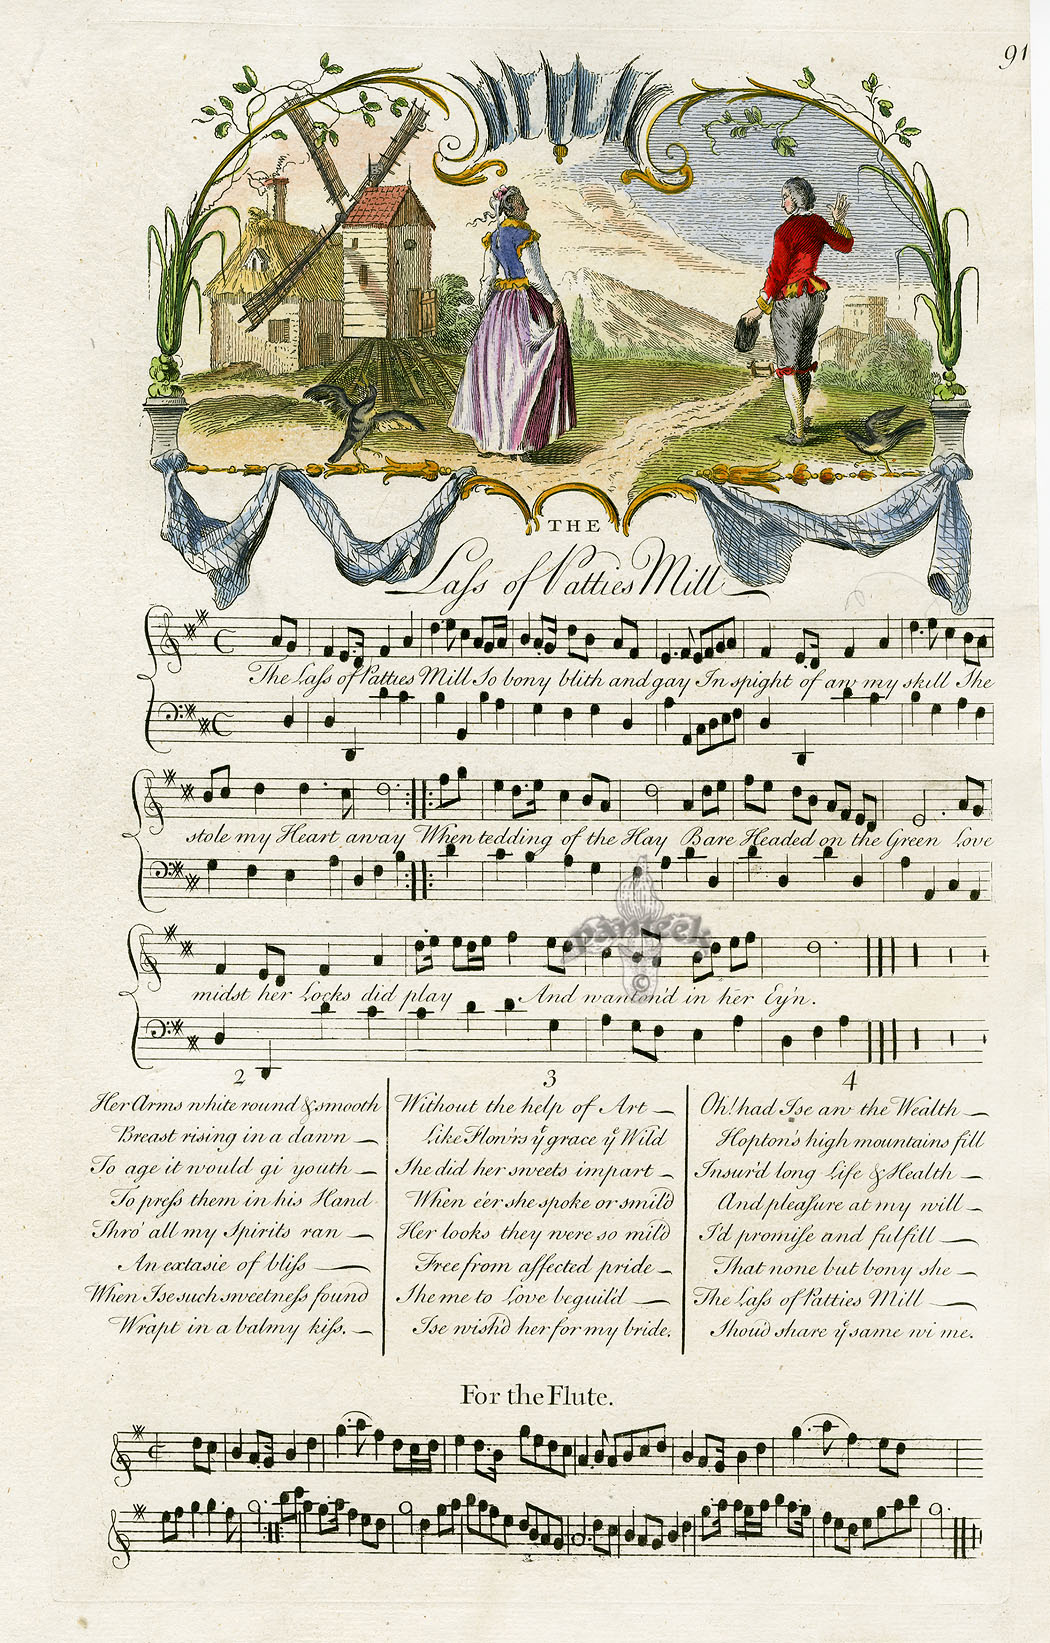 91
THE
Laſs of Patties Mill
The Laſs of Patties Mill So bony blith and gay In spight of aw my skill She
stole my Heart away When tedding of the Hay Bare Headed on the Green Love
midst her Locks did play And wanton'd in her Ey'n.
2
Her Arms white round & smooth
Breast rising in a dawn
To age it would gi youth
To preſs them in his Hand
Thro' all my Spirits ran
An extasie of bliſs
When Ise such sweetneſs found
Wrapt in a balmy kiſs.
3
Without the help of Art
Like Flow'rs yͤ grace yͤ Wild
She did her sweets impart
When e'er she spoke or smil'd
Her looks they were so mild
Free from affected pride
She me to Love beguil'd
Ise wish'd her for my bride.
4
Oh! had Ise aw the Wealth
Hopton's high mountains fill
Insur'd long Life & Health
And pleaſure at my will
I'd promiſe and fulfill
That none but bony she
The Laſs of Patties Mill
Shou'd share yͤ same wi me.
For the Flute.
panteek
©